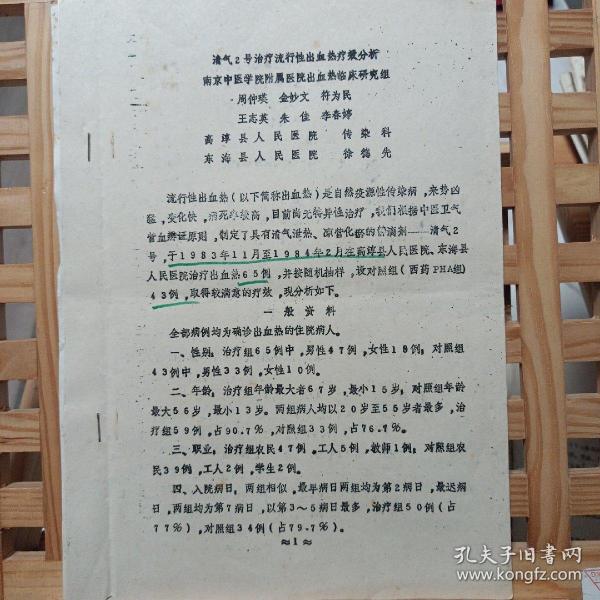 清气2号治疗流行性出血热疗效分析
南京中医学院附属医院出血热临床研究组
周仲瑛 金妙文 符为民
王志英 朱佳 李春婷
高淳县人民医院 传染科
东海县人民医院 徐德先
流行性出血热(以下简称出血热)是自然疫源性传染病,来势凶
猛,变化快,病死率较高,目前尚无特异性治疗,我们根据中医卫气
营血辨证原则,制定了具有清气泄热、凉营化瘀的静滴剂——清气2
号,于1983年11月至1984年2月在高淳县人民医院、东海县
人民医院治疗出血热65例,并按随机抽样,设对照组(西药PHA组)
43例,取得较满意的疗效,现分析如下。
一般资料
全部病例均为确诊出血热的住院病人。
一、性别:治疗组65例中,男性47例,女性18例;对照组
43例中,男性33例,女性10例。
二、年龄:治疗组年龄最大者67岁,最小15岁;对照组年龄
最大56岁,最小13岁。两组病人均以20岁至55岁者最多,治
疗组59例,占90.7%,对照组33例,占76.7%。
三、职业:治疗组农民47例,工人5例,教师1例;对照组农
民39例,工人2例,学生2例。
四、入院病日:两组相似,最早病日两组均为第2病日,最迟病
日,两组均为第7病日,以第3~5病日最多,治疗组50例(占
77%),对照组34例(占79.7%)。
≈1≈
孔夫子旧书网
www.kongfz.com